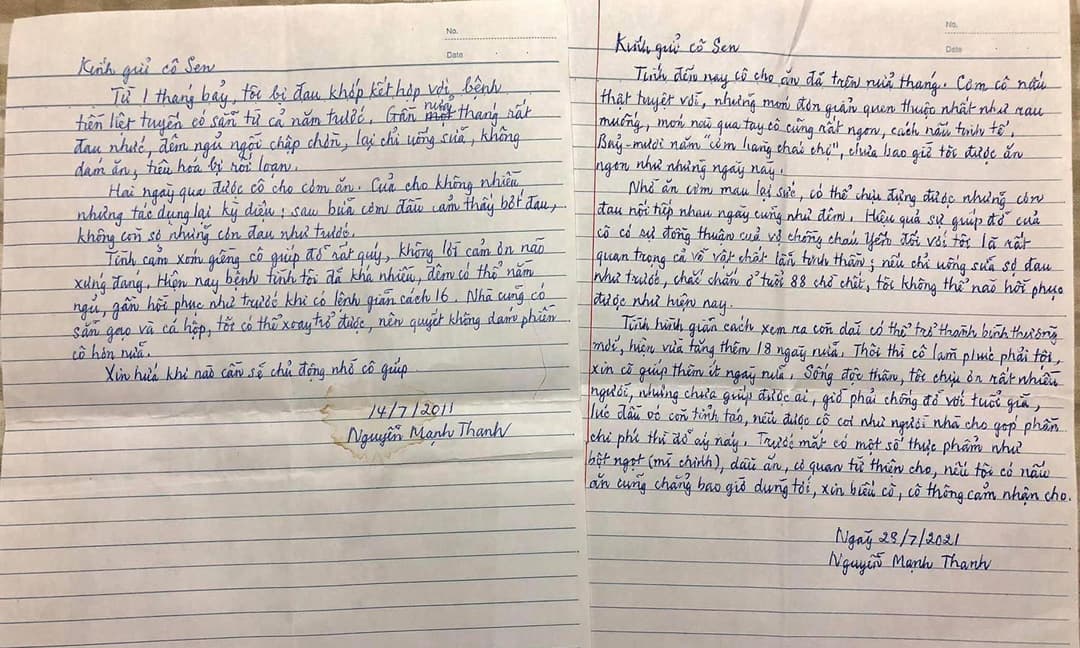 No.
Date
Kính gửi cô Sen
Từ 1 tháng bảy, tôi bị đau khớp kết hợp với bệnh
tiền liệt tuyến có sẵn từ cả năm trước. Gần nửa tháng rất
đau nhức, đêm ngủ ngồi chập chờn, lại chỉ uống sữa, không
dám ăn, tiêu hóa bị rối loạn.
Hai ngày qua được cô cho cơm ăn. Của cho không nhiều
nhưng tác dụng lại kỳ diệu: sau bữa cơm đầu cảm thấy bớt đau,
không còn sợ những cơn đau như trước.
Tình cảm xóm giềng cô giúp đỡ rất quý, không lời cảm ơn nào
xứng đáng. Hiện nay bệnh tình tôi đã khá nhiều, đêm có thể nằm
ngủ, gần hồi phục như trước khi có lệnh giãn cách 16. Nhà cũng có
sẵn gạo và cá hộp, tôi có thể xoay trở được, nên quyết không dám phiền
cô hơn nữa.
Xin hứa khi nào cần sẽ chủ động nhờ cô giúp
14/7/2011
Nguyễn Mạnh Thanh
No.
Date
Kính gửi cô Sen
Tính đến nay cô cho ăn đã trên nửa tháng. Cơm cô nấu
thật tuyệt vời, những món đơn giản quen thuộc nhất như rau
muống, món nào qua tay cô cũng rất ngon, cách nấu tinh tế.
Bảy-mươi năm "cơm hàng cháo chợ", chưa bao giờ tôi được ăn
ngon như những ngày này.
Nhờ ăn cơm mau lại sức, có thể chịu đựng được những cơn
đau nối tiếp nhau ngày cũng như đêm. Hiệu quả sự giúp đỡ của
cô có sự đồng thuận của vợ chồng cháu Yến đối với tôi là rất
quan trọng cả về vật chất lẫn tinh thần; nếu chỉ uống sữa sợ đau
như trước, chắc chắn ở tuổi 88 chờ chết, tôi không thể nào hồi phục
được như hiện nay.
Tình hình giãn cách xem ra còn dài có thể trở thành bình thường
mới, hiện vừa tăng thêm 18 ngày nữa. Thôi thì cô làm phúc phải tội,
xin cô giúp thêm ít ngày nữa. Sống độc thân, tôi chịu ơn rất nhiều
người, nhưng chưa giúp được ai, giờ phải chống đỡ với tuổi già,
lúc đầu óc còn tỉnh táo, nếu được cô coi như người nhà cho góp phần
chi phí thì đỡ áy náy. Trước mắt có một số thực phẩm như
bột ngọt (mì chính), dầu ăn, cơ quan từ thiện cho, nếu tôi có nấu
ăn cũng chẳng bao giờ dùng tới, xin biếu cô, cô thông cảm nhận cho.
Ngày 29/7/2021
Nguyễn Mạnh Thanh